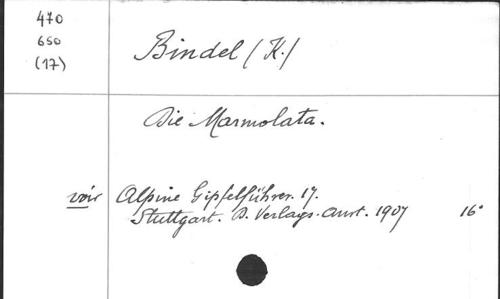 470
650
(17)
Bindel (K.)
Die Marmolata.
voir Alpine Gipfelführer. 17.
Stuttgart. D. Verlags-Anst. 1907 16°